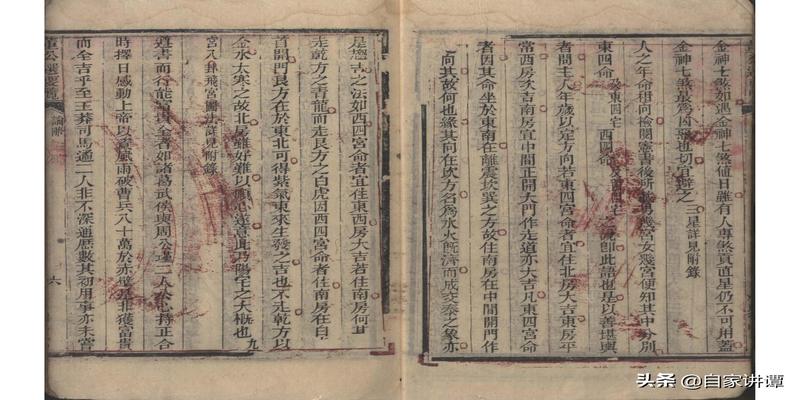 金神七煞如遇金神七煞値日雖有人專煞貢直星仍不可用蓋
金神七煞最爲凶惡也切宜避之 三星詳見附錄
人之年命相同檢閱憲書後所載男幾宮女幾宮便知其中分別
東四命 及東四宅 西四命 及西四宅 之說卽此語也是以善堪輿
者問主人年歲以定方向若東四宮命者宜住北房大吉東房平
常西房次吉南房宜中間正開大門作走道亦大吉凡東四宮命
者因其命坐於東南在離震坎巽之方故住南房在中間開門作
向其故何也緣其向在坎方名爲水火旣濟而成交泰之象亦
是趨吉之法如西四宮命者宜住東西房大吉若住南房何
走乾方之靑龍而走艮方之白虎因西四宮命者住南房在自
首開門艮方在於東北可得紫氣東來生發之吉也不走乾方以
金水大寒之故北房雖好難以 心遠意此乃陽宅之大槪也
宮八卦飛宮圖法詳見附錄
遵書而行能富貴全者如諸葛武侯與周公瑾二人公心持正合
時擇日感動上帝以 風雨破曹兵八十萬於赤壁是非獲富貴
而全吉乎至王莽司馬遹二人非不深通曆數其初用事亦未嘗
論斷
六
九
头条 @自家讲谭